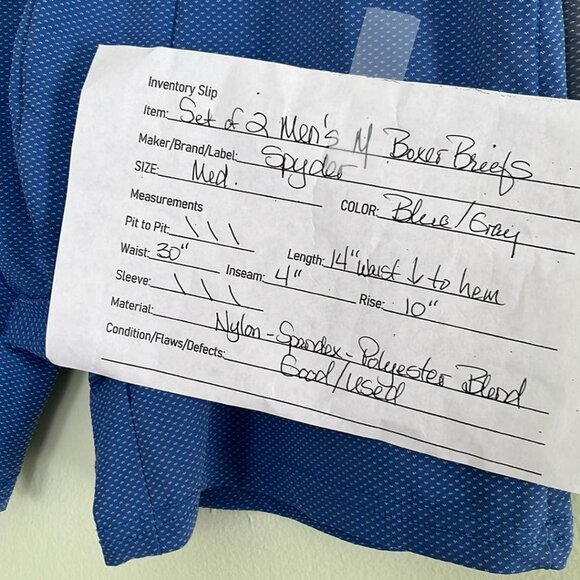 Inventory Slip
Item: Set of 2 Men's M Boxer Briefs
Maker/Brand/Label: Spyder
SIZE: Med. COLOR: Blue/Gray
Measurements
Pit to Pit: \ \ \
Waist: 30" Length: 14" waist ↓ to hem
Sleeve: \ \ \ Inseam: 4" Rise: 10"
Material: Nylon-Spandex-Polyester Blend
Condition/Flaws/Defects: Good/used